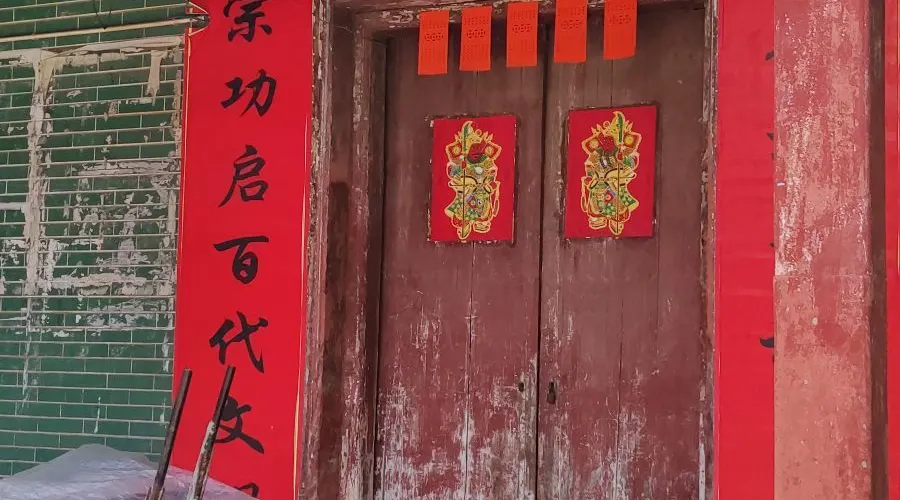 宗功启百代文